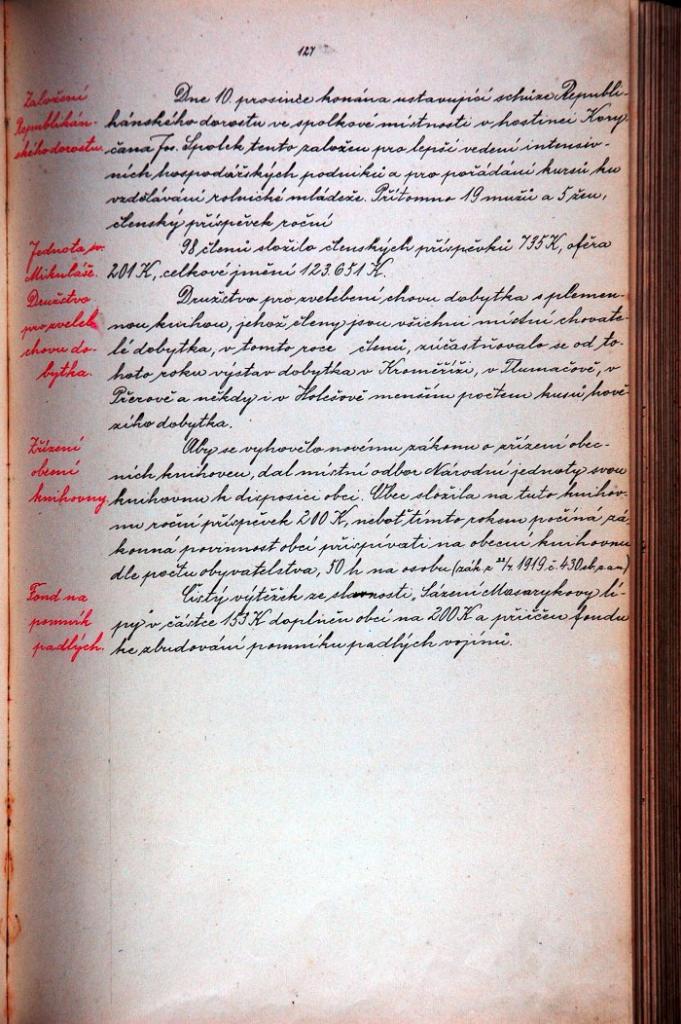 127
Založení
Republikán-
ského dorostu.
Dne 10. prosince konána ustavující schůze Republi-
kánského dorostu ve spolkové místnosti v hostinci Kory
čana Jos. Spolek tento založen pro lepší vedení intensiv-
ních hospodářských podniků a pro pořádání kursů ku
vzdělávání rolnické mládeže. Přítomno 19 mužů a 5 žen,
členský příspěvek roční
Jednota sv.
Mikuláše.
98 členů složilo členských příspěvků 735 K, ofěra
201 K, celkové jmění 123.651 K.
Družstvo
pro zveleb.
chovu do-
bytka.
Družstvo pro zvelebení chovu dobytka s plemen-
nou knihou, jehož členy jsou všichni místní chovate-
lé dobytka, v tomto roce členů, zúčastňovalo se od to-
hoto roku výstav dobytka v Kroměříži, v Tlumačově, v
Přerově a někdy i v Holešově menším počtem kusů hově
zího dobytka.
Zřízení
obecní
knihovny.
Aby se vyhovělo novému zákonu o zřízení obec-
ních knihoven, dal místní odbor Národní jednoty svou
knihovnu k disposici obci. Obec složila na tuto knihov-
nu roční příspěvek 200 K, neboť tímto rokem počíná zá-
konná povinnost obcí přispívati na obecní knihovnu
dle počtu obyvatelstva, 50 h na osobu (zák. z 22/7 1919 č. 430 sb. z. a n.)
Fond na
pomník
padlých.
Čistý výtěžek ze slavnosti „Sázení Masarykovy lí-
py" v částce 153 K doplněn obcí na 200 K a přičten fondu
ke zbudování pomníku padlých vojínů.